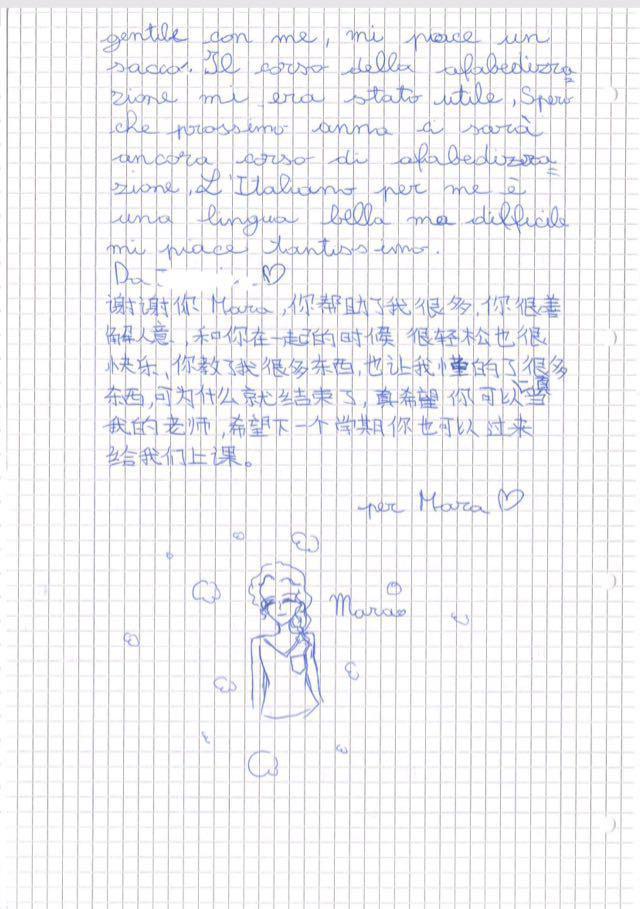 gentile con me, mi piace un
sacco. Il corso della afabedizza=
zione mi era stato utile, Spero
che prossimo anno ci sarà
ancora corso di afabedizza=
zione, L'Italiano per me è
una lingua bella ma difficile
mi piace tantissimo.
Da ♡
谢谢你 Mara,你帮助了我很多,你很善
解人意,和你在一起的时候 很轻松也很
快乐,你教了我很多东西,也让我懂的了很多
东西,可为什么就结束了,真希望 你可以一直当
我的老师,希望下一个学期你也可以过来
给我们上课。
per Mara ♡
Mara